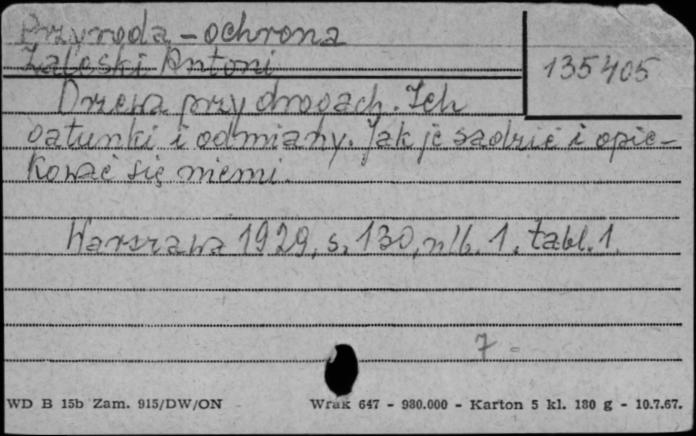 Przyroda - ochrona
Załęski Antoni
135405
Drzewa przy drogach. Ich
gatunki i odmiany. Jak je sadzić i opie-
kować się niemi.
Warszawa 1929, s. 130, nlb. 1, tabl. 1.
7 -
WD B 15b Zam. 915/DW/ON
Wrak 647 - 980.000 - Karton 5 kl. 180 g - 10.7.67.